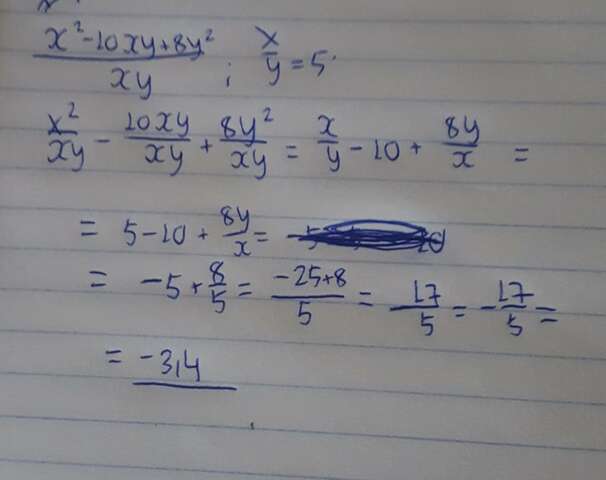 (x²-10xy+8y²)/(xy) ; x/y=5.
x²/xy - 10xy/xy + 8y²/xy = x/y - 10 + 8y/x =
= 5-10 + 8y/x =
= -5 + 8/5 = (-25+8)/5 = -17/5 = -17/5 =
= -3,4